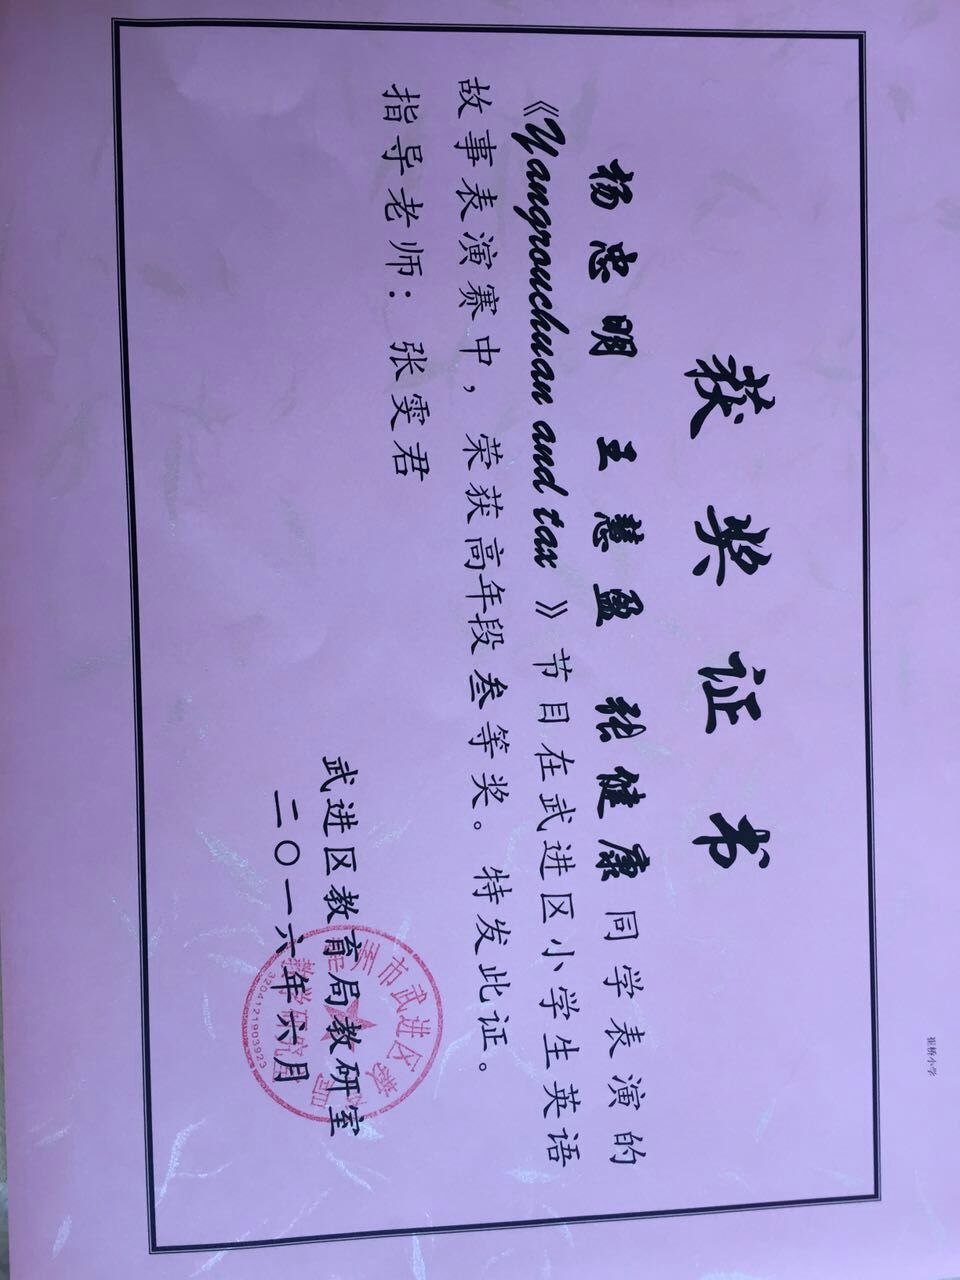 崔桥小学
获奖证书
杨忠明 王慧盈 张健康同学表演的
《Yangrouchuan and tax》节目在武进区小学生英语
故事表演赛中，荣获高年段叁等奖。特发此证。
指导老师：张雯君
武进区教育局教研室
二〇一六年六月
州市武进区教
教学研究室
3204121903923